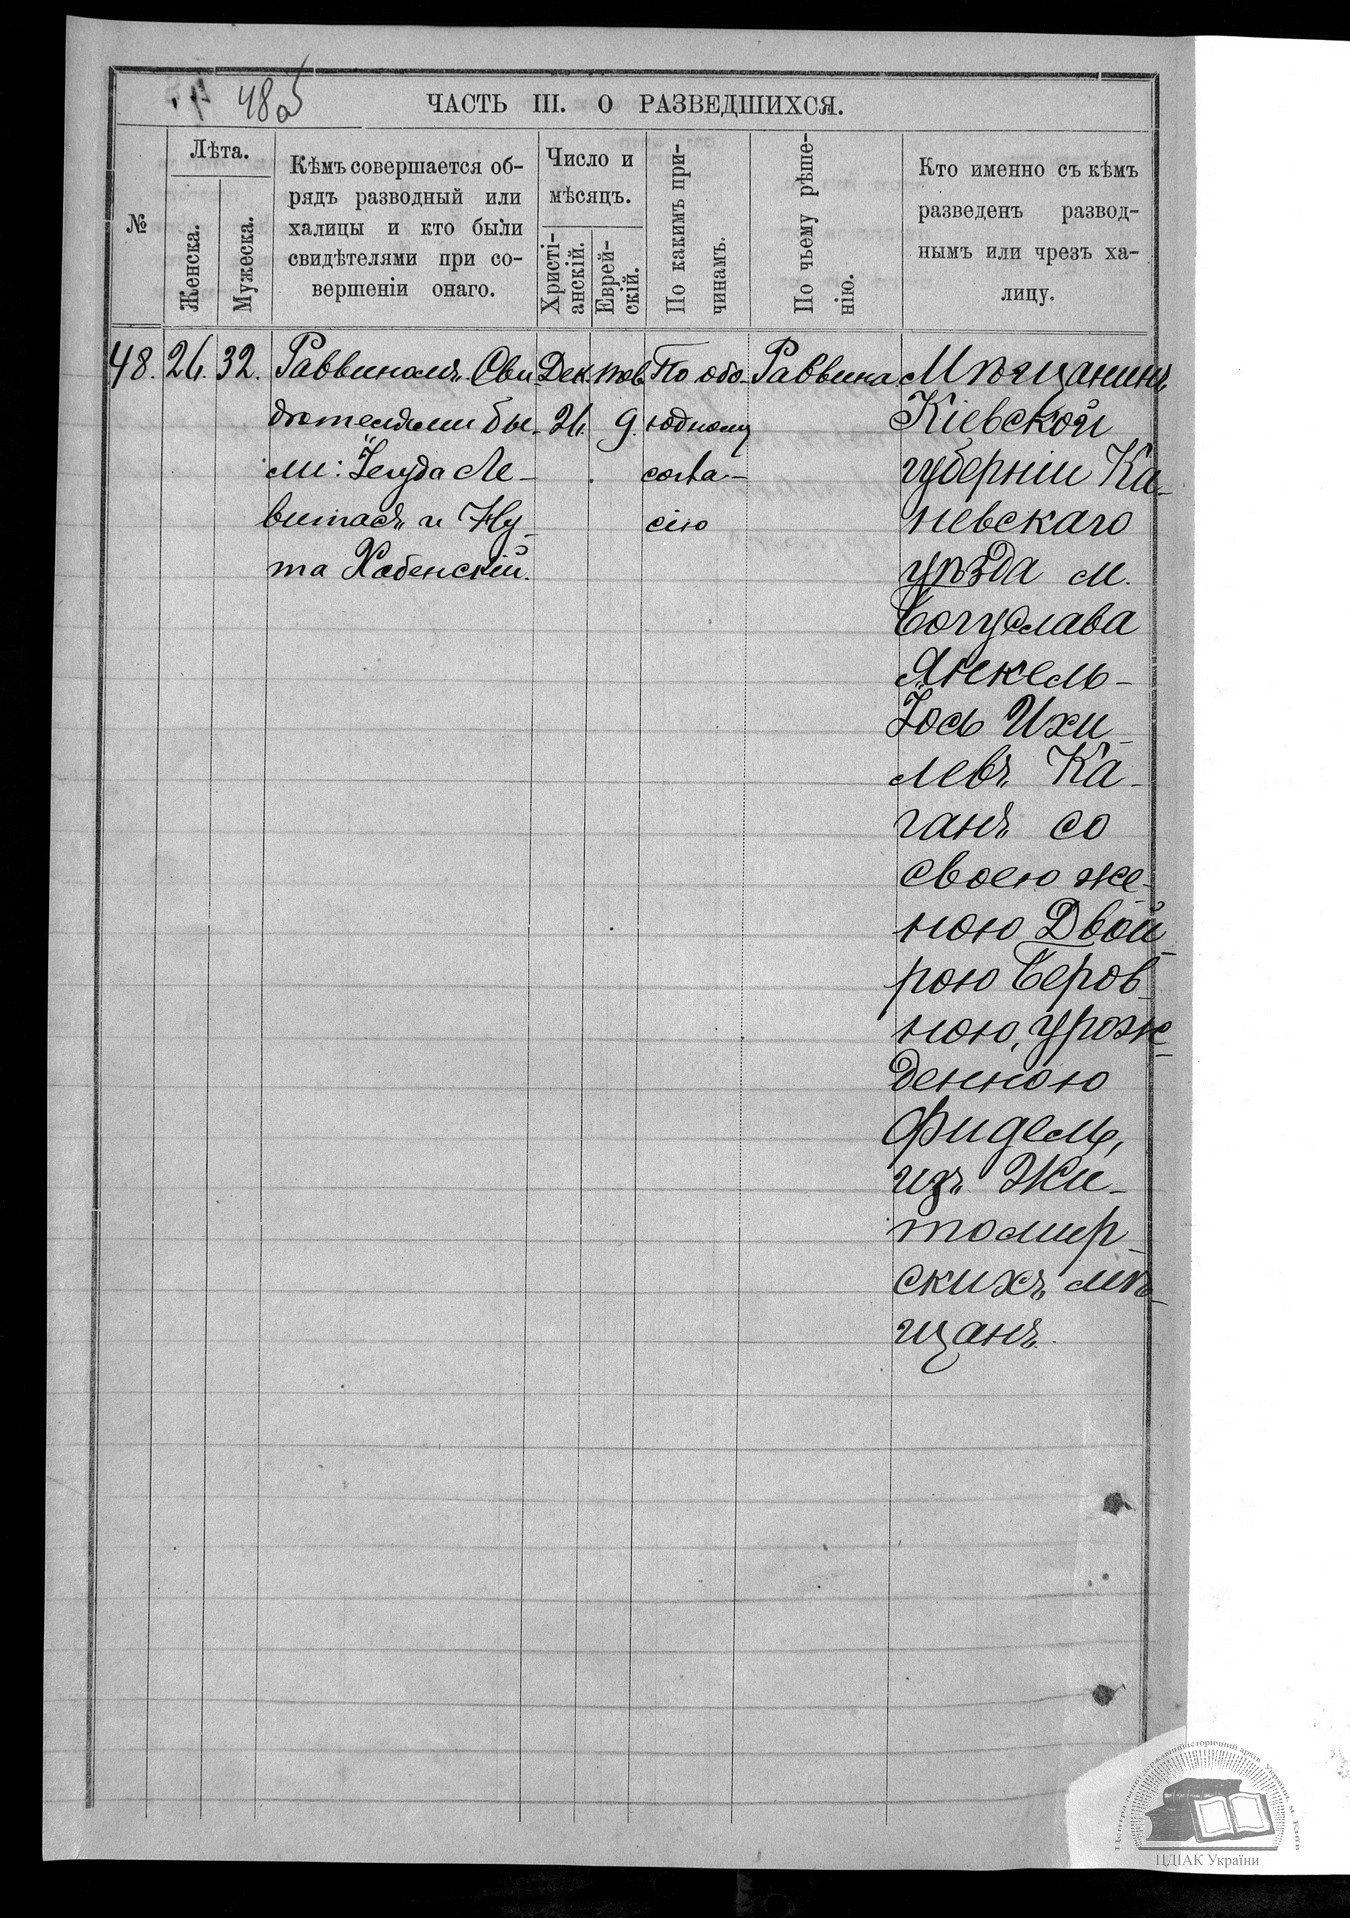 48 об
ЧАСТЬ III. О РАЗВЕДШИХСЯ.
№
Лѣта.
Женска.
Мужеска.
Кѣмъ совершается об-
рядъ разводный или
халицы и кто были
свидѣтелями при со-
вершеніи онаго.
Число и
мѣсяцъ.
Христі-
анскій.
Еврей-
скій.
По какимъ при-
чинамъ.
По чьему рѣше-
нію.
Кто именно съ кѣмъ
разведенъ развод-
нымъ или чрезъ ха-
лицу.
48.
26.
32.
Раввиномъ. Сви-
дѣтелями бы-
ли: Іегуда Ле-
витасъ и Ну-
та Хабенскій.
Дек.
26.
Тев.
9.
По обо-
юдному
согла-
сію
Раввина.
Мѣщанинъ
Кіевской
губерніи Ка-
невскаго
уѣзда м.
Богуслава
Янкель-
Іось Ихи-
левъ Ка-
ганъ со
своею же-
ною Двой-
рою Беров-
ною, урож-
денною
Фидель,
изъ Жи-
томир-
скихъ мѣ-
щанъ.
Центральний державний історичний архів України, м. Київ
ЦДІАК України